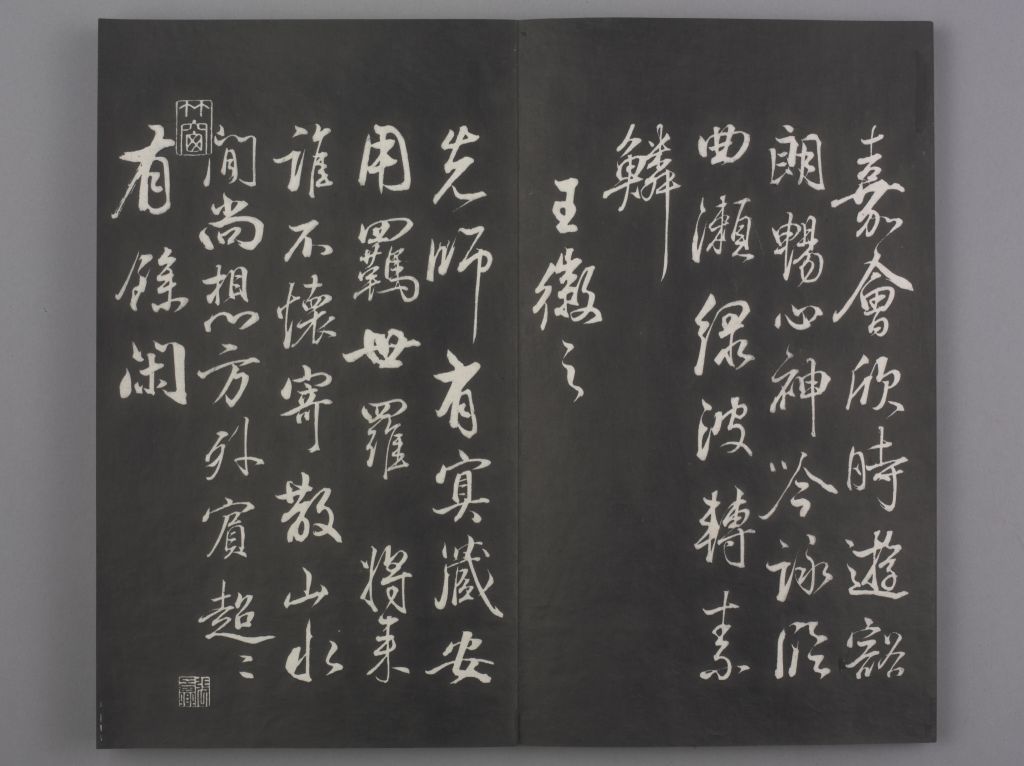 嘉會欣時遊豁
朗暢心神吟詠臨
曲瀨緑波轉素
鱗
王徽之
先師有冥藏安
用羈世羅將来
誰不懷寄散山水
間尚想方外賓超〻
有餘閑
竹窗